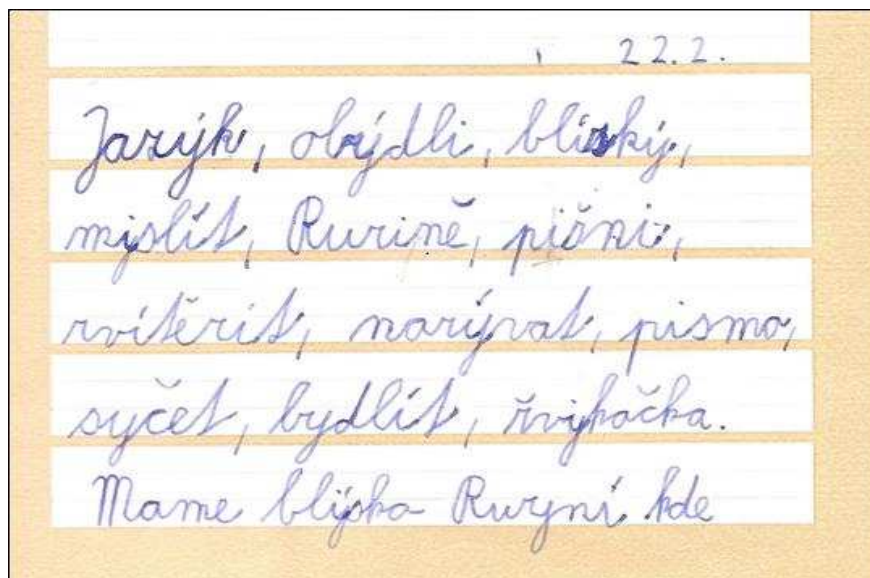 22.2.
Jazýk, obýdli, blízký,
myslít, Ruzině, pišni,
zvítězit, nazývat, pismo,
syčet, bydlít, žvýkačka.
Mame blýska Ruzyní kde